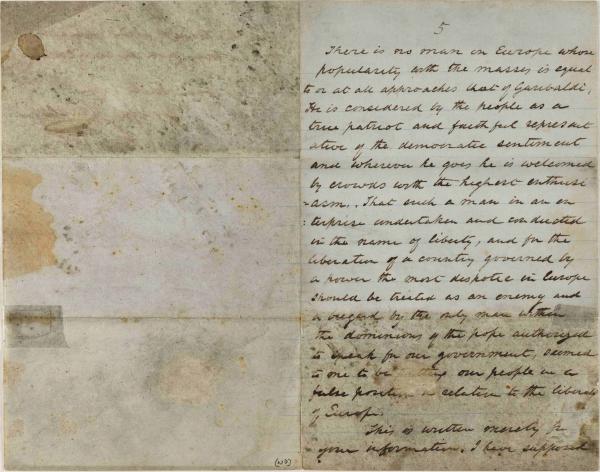 5
There is no man in Europe whose
popularity with the masses is equal
to or at all approaches that of Garibaldi,
He is considered by the people as a
true patriot and faithful represent
ative of the democratic sentiment
and wherever he goes he is welcomed
by crowds with the highest enthusi
-asm. That such a man in an en
terprise undertaken and conducted
in the name of liberty, and for the
liberation of a country governed by
a power the most despotic in Europe
should be treated as an enemy and
a by the only man within
the dominions of the pope authorized
to speak for our government, seemed
to me to be our people in a
false position in relation to the liberals
of Europe.
This is written merely for
your information. I have supposed
(OVER)